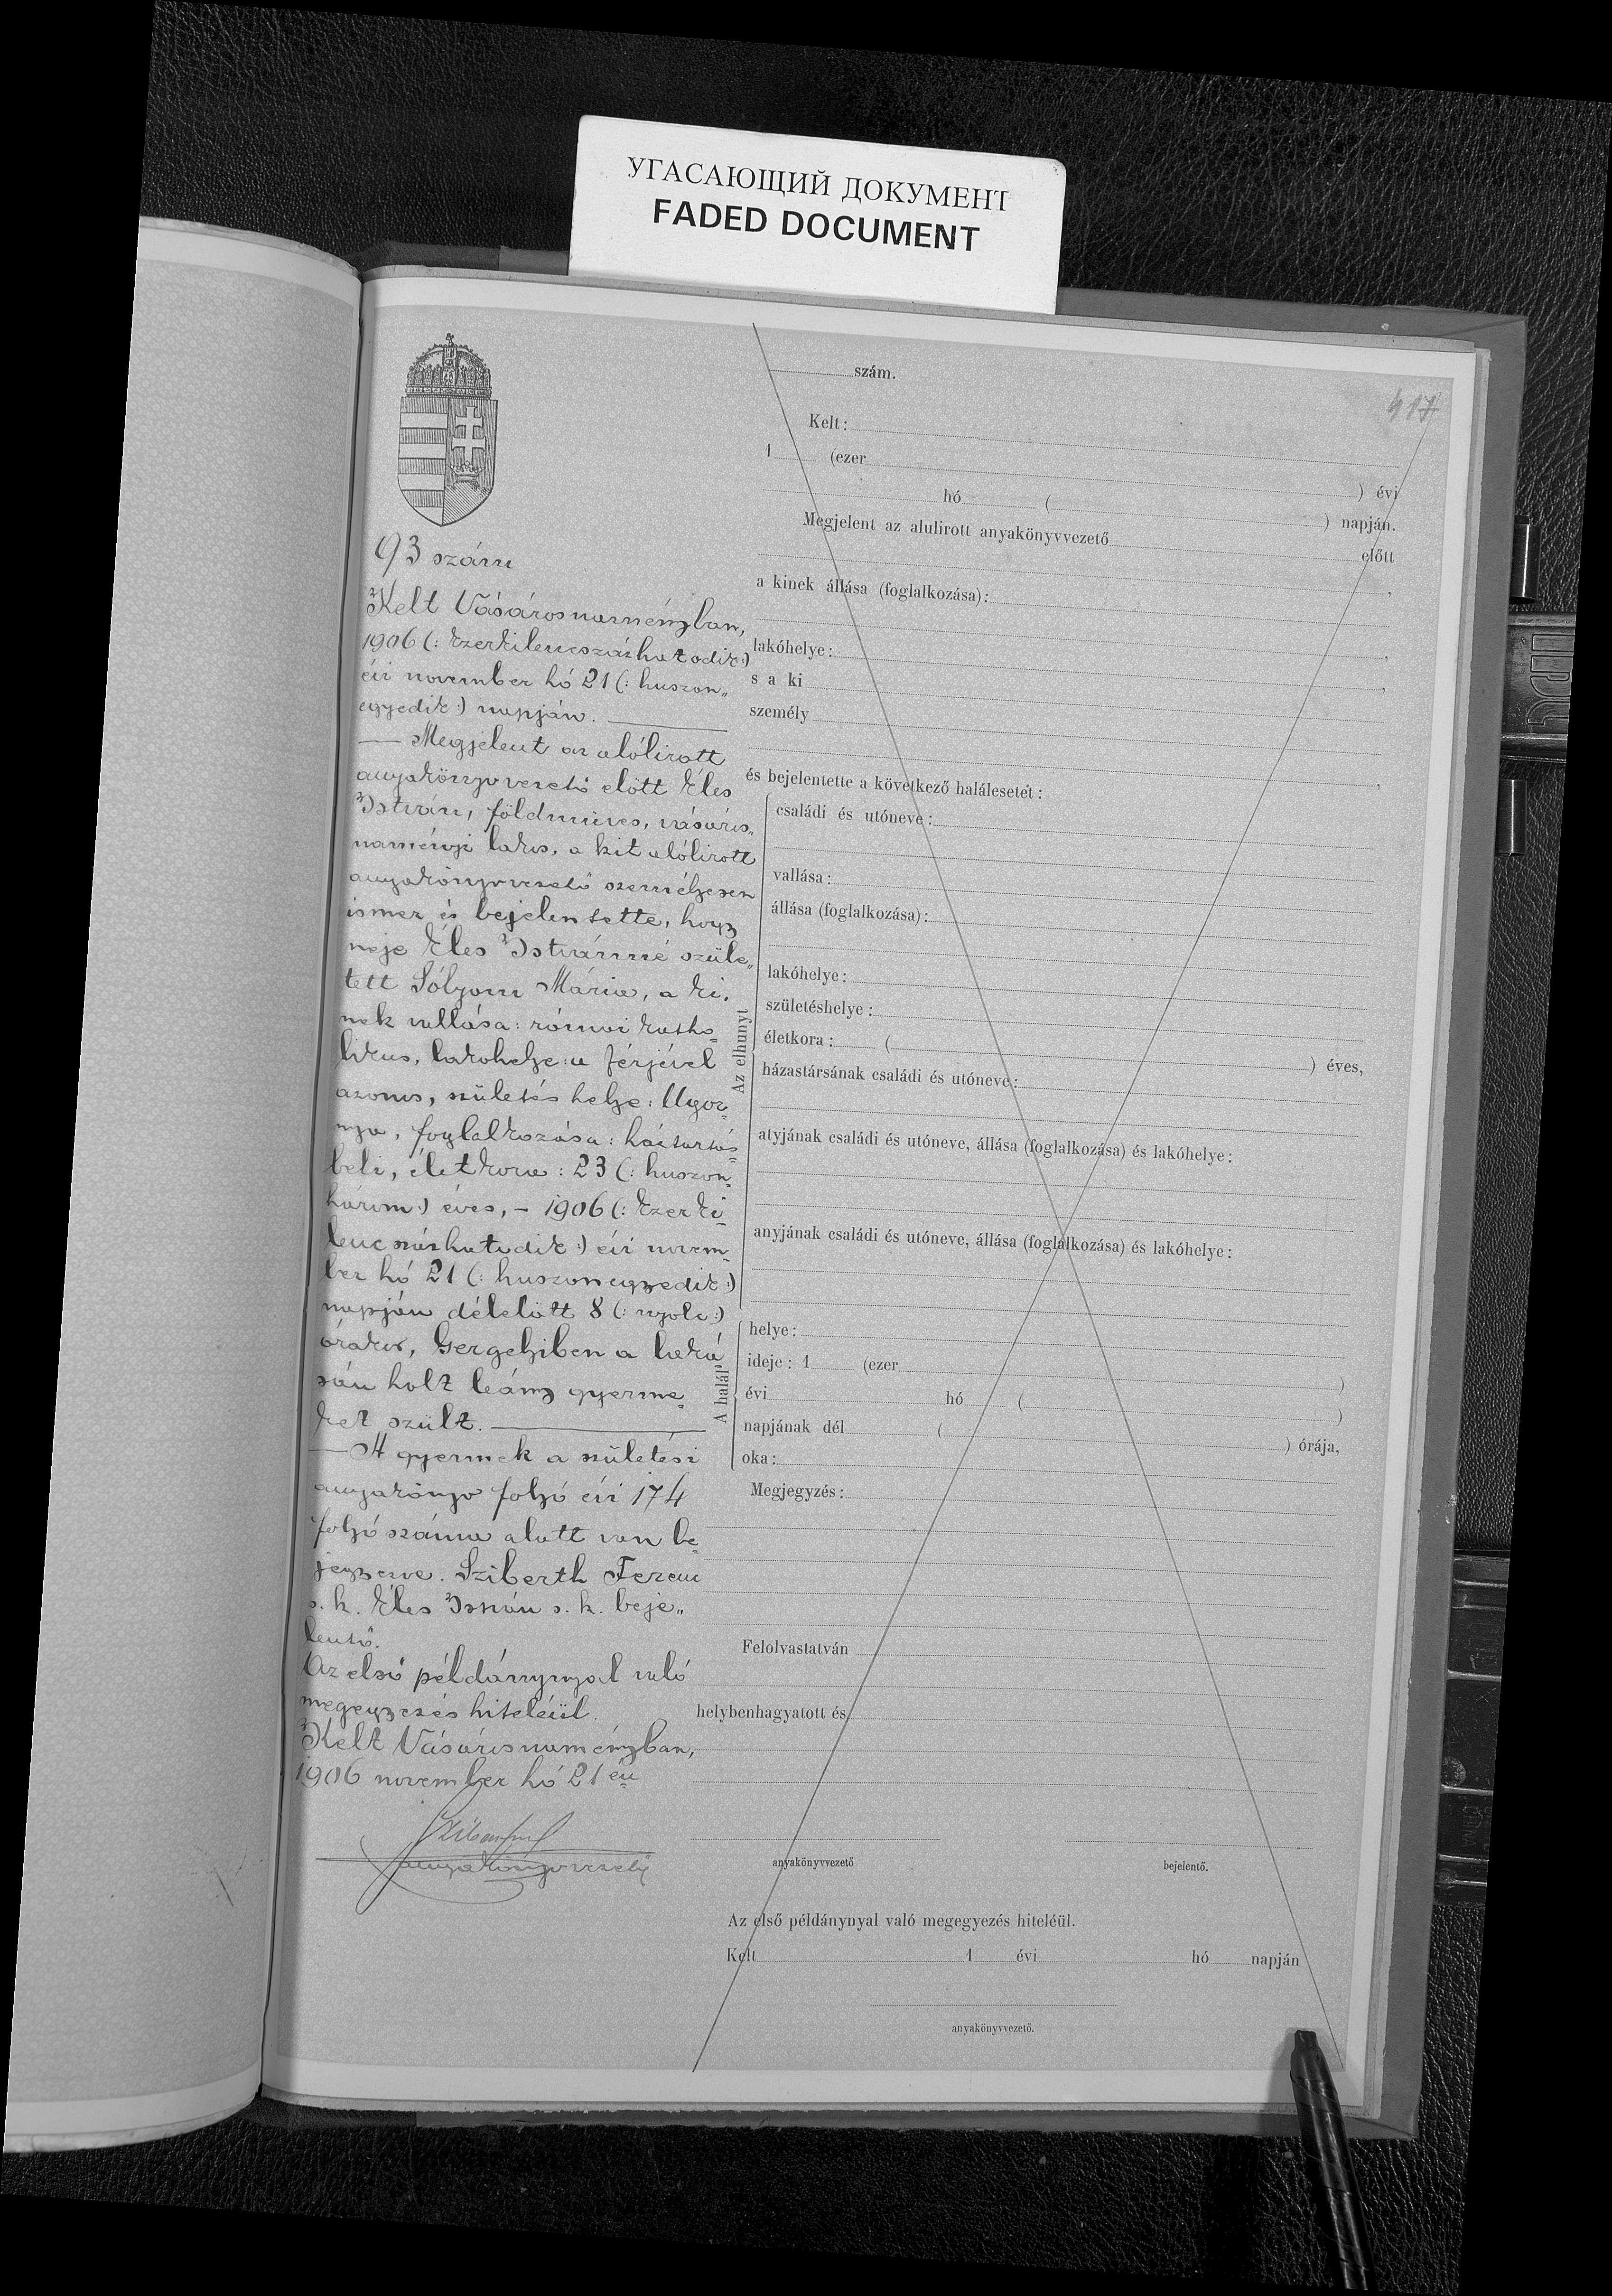 УГАСАЮЩИЙ ДОКУМЕНТ
FADED DOCUMENT
417
93 szám
Kelt Vásárosnaményban,
1906 (: Ezerkilencszázhatodik :)
évi november hó 21 (: huszon„
egyedik :) napján.
— Megjelent az alólirott
anyakönyvvezető előtt Éles
István, földmüves, vásáros„
naményi lakos, a kit alólirott
anyakönyvvezető személyesen
ismer és bejelentette, hogy
neje Éles Istvánné szüle„
tett Sólyom Mária, a ki„
nek vallása: római katho„
likus, lakohelye: a férjével
azonos, születés helye: Ugor„
nya, foglalkozása: háztartás„
beli, életkora: 23 (: huszon„
három :) éves, – 1906 (: Ezerki„
lencszázhatodik :) évi novem„
ber hó 21 (: huszonegyedik :)
napján délelőtt 8 (: nyolc :)
órakor, Gergelyiben a laká„
sán holt leány gyerme„
ket szült.
— A gyermek a születési
anyakönyv folyó évi 174
folyó száma alatt van be„
jegyezve. Sziberth Ferenc
s. k. Éles István s. k. beje„
lentő.
Az első példánynyal való
megegyezés hiteléül.
Kelt Vásárosnaményban,
1906 november hó 21 én
anyakönyvvezető
szám.
Kelt:
1 (ezer
) évi
hó ( ) napján.
Megjelent az alulirott anyakönyvvezető
előtt
a kinek állása (foglalkozása):
,
lakóhelye: ,
s a ki ,
személy
,
és bejelentette a következő halálesetet:
Az elhunyt
családi és utóneve:
vallása:
állása (foglalkozása):
lakóhelye:
születéshelye:
életkora: ( ) éves,
házastársának családi és utóneve:
atyjának családi és utóneve, állása (foglalkozása) és lakóhelye:
anyjának családi és utóneve, állása (foglalkozása) és lakóhelye:
A halál
helye:
ideje: 1 (ezer )
évi hó ( )
napjának dél ( ) órája,
oka:
Megjegyzés:
Felolvastatván
helybenhagyatott és
anyakönyvvezető bejelentő.
Az első példánynyal való megegyezés hiteléül.
Kelt 1 évi hó napján
anyakönyvvezető.